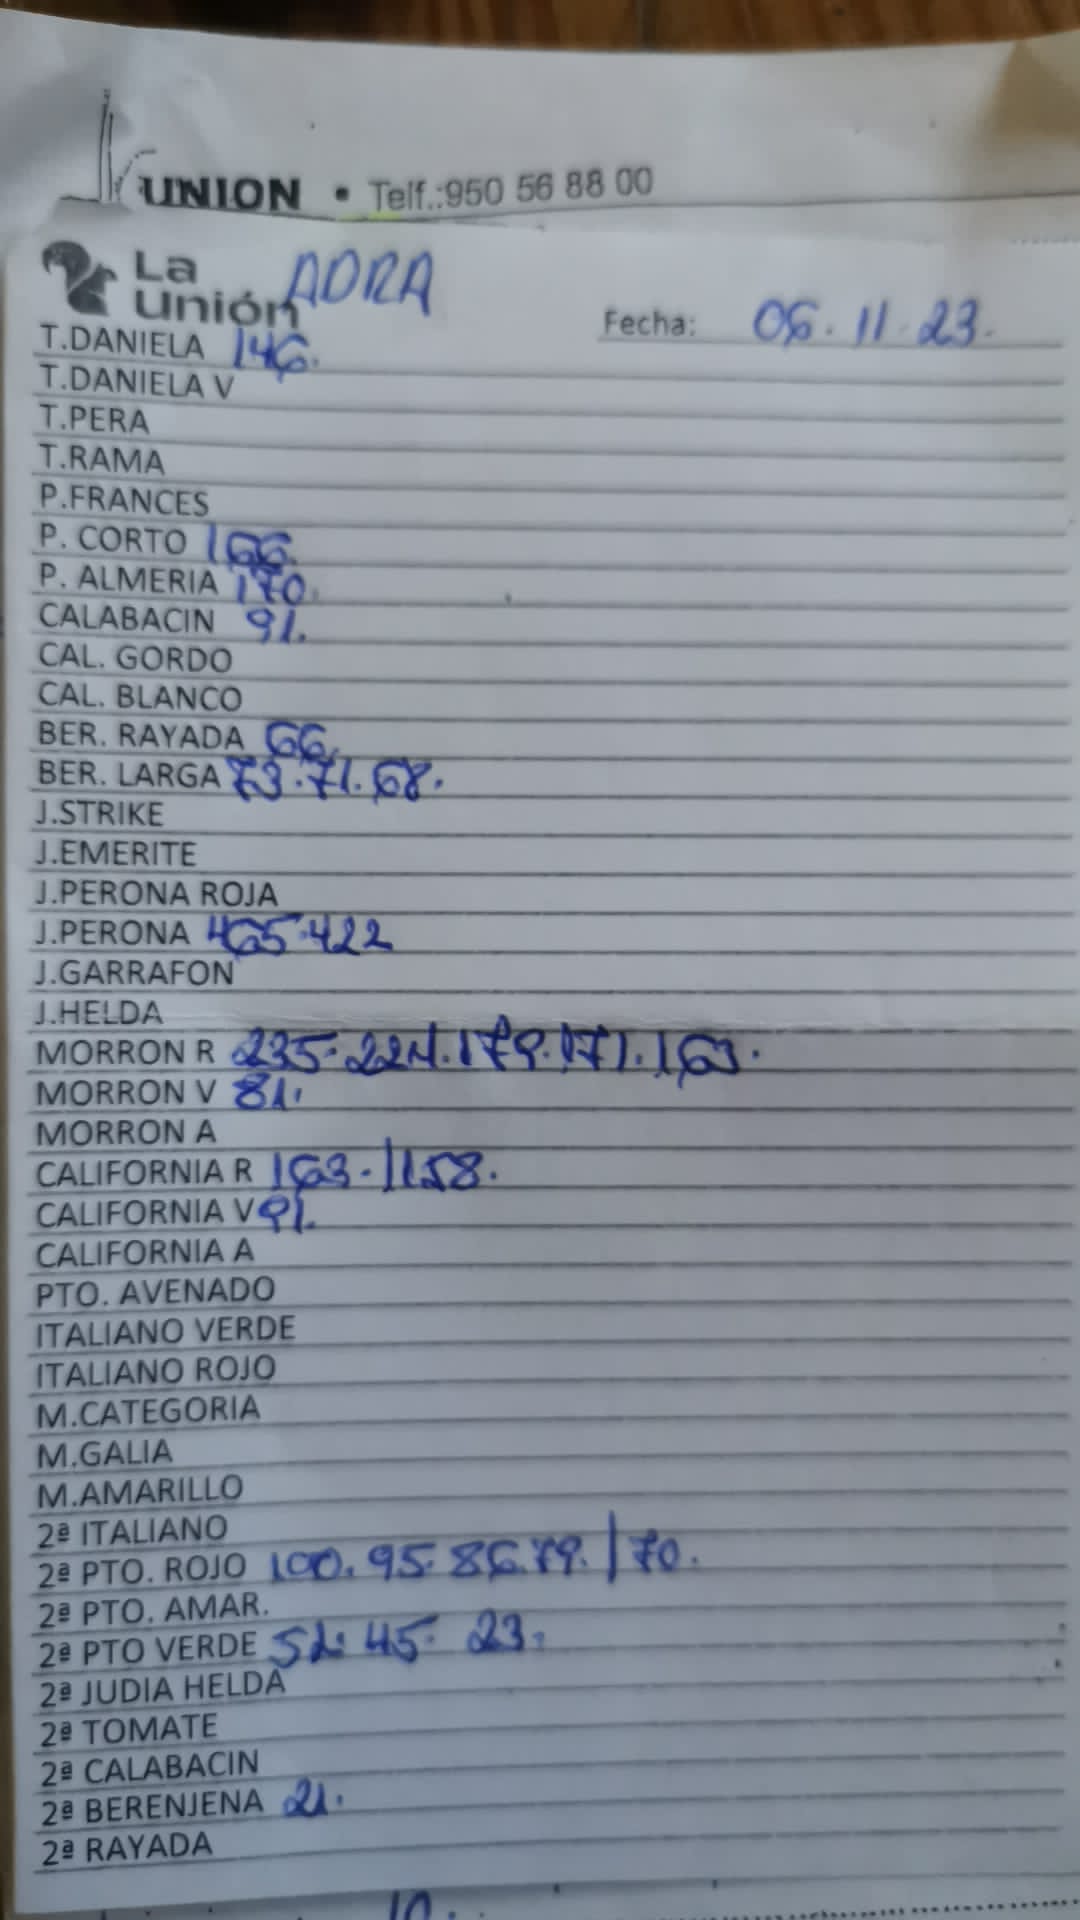 UNION • Telf.:950 56 88 00
La Unión ADRA
Fecha: 06.11.23.
T.DANIELA 146.
T.DANIELA V
T.PERA
T.RAMA
P.FRANCES
P. CORTO 166.
P. ALMERIA 170.
CALABACIN 91.
CAL. GORDO
CAL. BLANCO
BER. RAYADA 66.
BER. LARGA 73.71.68.
J.STRIKE
J.EMERITE
J.PERONA ROJA
J.PERONA 465.422
J.GARRAFON
J.HELDA
MORRON R 235.224.179.171.163.
MORRON V 81.
MORRON A
CALIFORNIA R 163.|158.
CALIFORNIA V 91.
CALIFORNIA A
PTO. AVENADO
ITALIANO VERDE
ITALIANO ROJO
M.CATEGORIA
M.GALIA
M.AMARILLO
2ª ITALIANO
2ª PTO. ROJO 100.95.86.79.|70.
2ª PTO. AMAR.
2ª PTO VERDE 52.45.23.
2ª JUDIA HELDA
2ª TOMATE
2ª CALABACIN
2ª BERENJENA 21.
2ª RAYADA